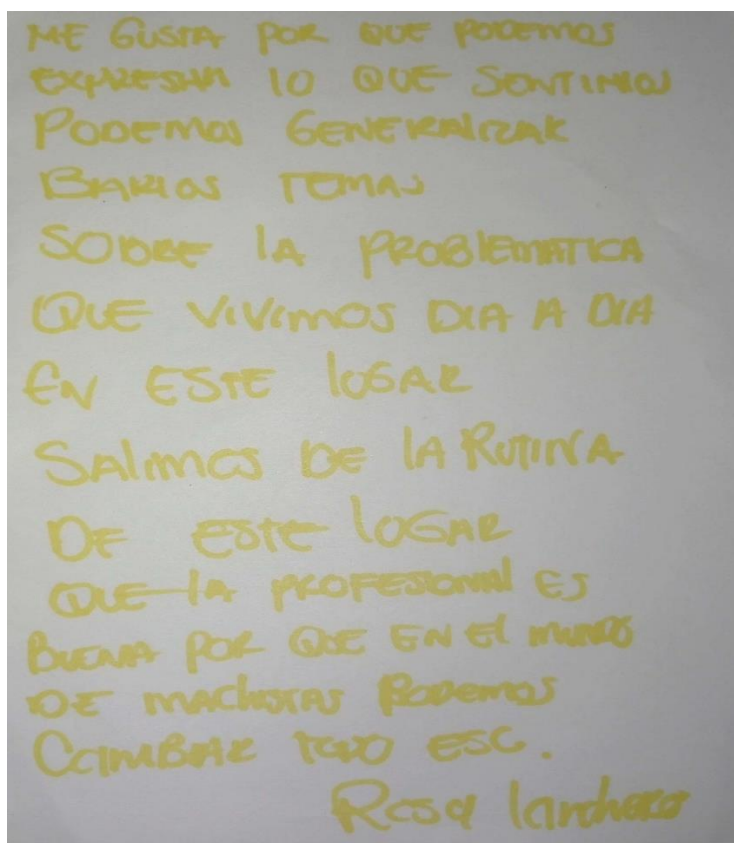 ME GUSTA POR QUE PODEMOS
EXPRESAR LO QUE SENTIMOS
PODEMOS GENERALIZAR
BARIOS TEMAS
SOBRE LA PROBLEMATICA
QUE VIVIMOS DIA A DIA
EN ESTE LUGAR
SALIMOS DE LA RUTINA
DE ESTE LUGAR
QUE LA PROFESIONAL ES
BUENA POR QUE EN EL MUNDO
DE MACHISTAS PODEMOS
CAMBIAR TODO ESO.
Rosa